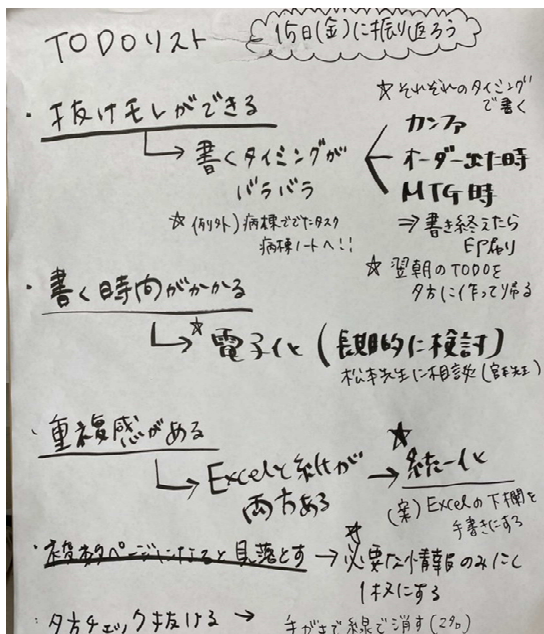 TODOリスト
15日(金)に振り返ろう
・抜けモレができる
→ 書くタイミングが
バラバラ
☆それぞれのタイミング
で書く
カンファ
オーダー出た時
MTG時
⇒書き終えたら
☆(例外)病棟ででたタスク
病棟ノートへ!!
☆翌朝のTODOを
夕方に作って帰る
・書く時間がかかる
→☆電子化(長期的に検討)
松本先生に相談
・重複感がある
→Excelと紙が
両方ある
→☆統一化
(案)Excelの下欄を
手書きにする
・複数ページになると見落とす→☆必要な情報のみにし
1枚にする
・夕方チェック抜ける→
手がきで線で消す